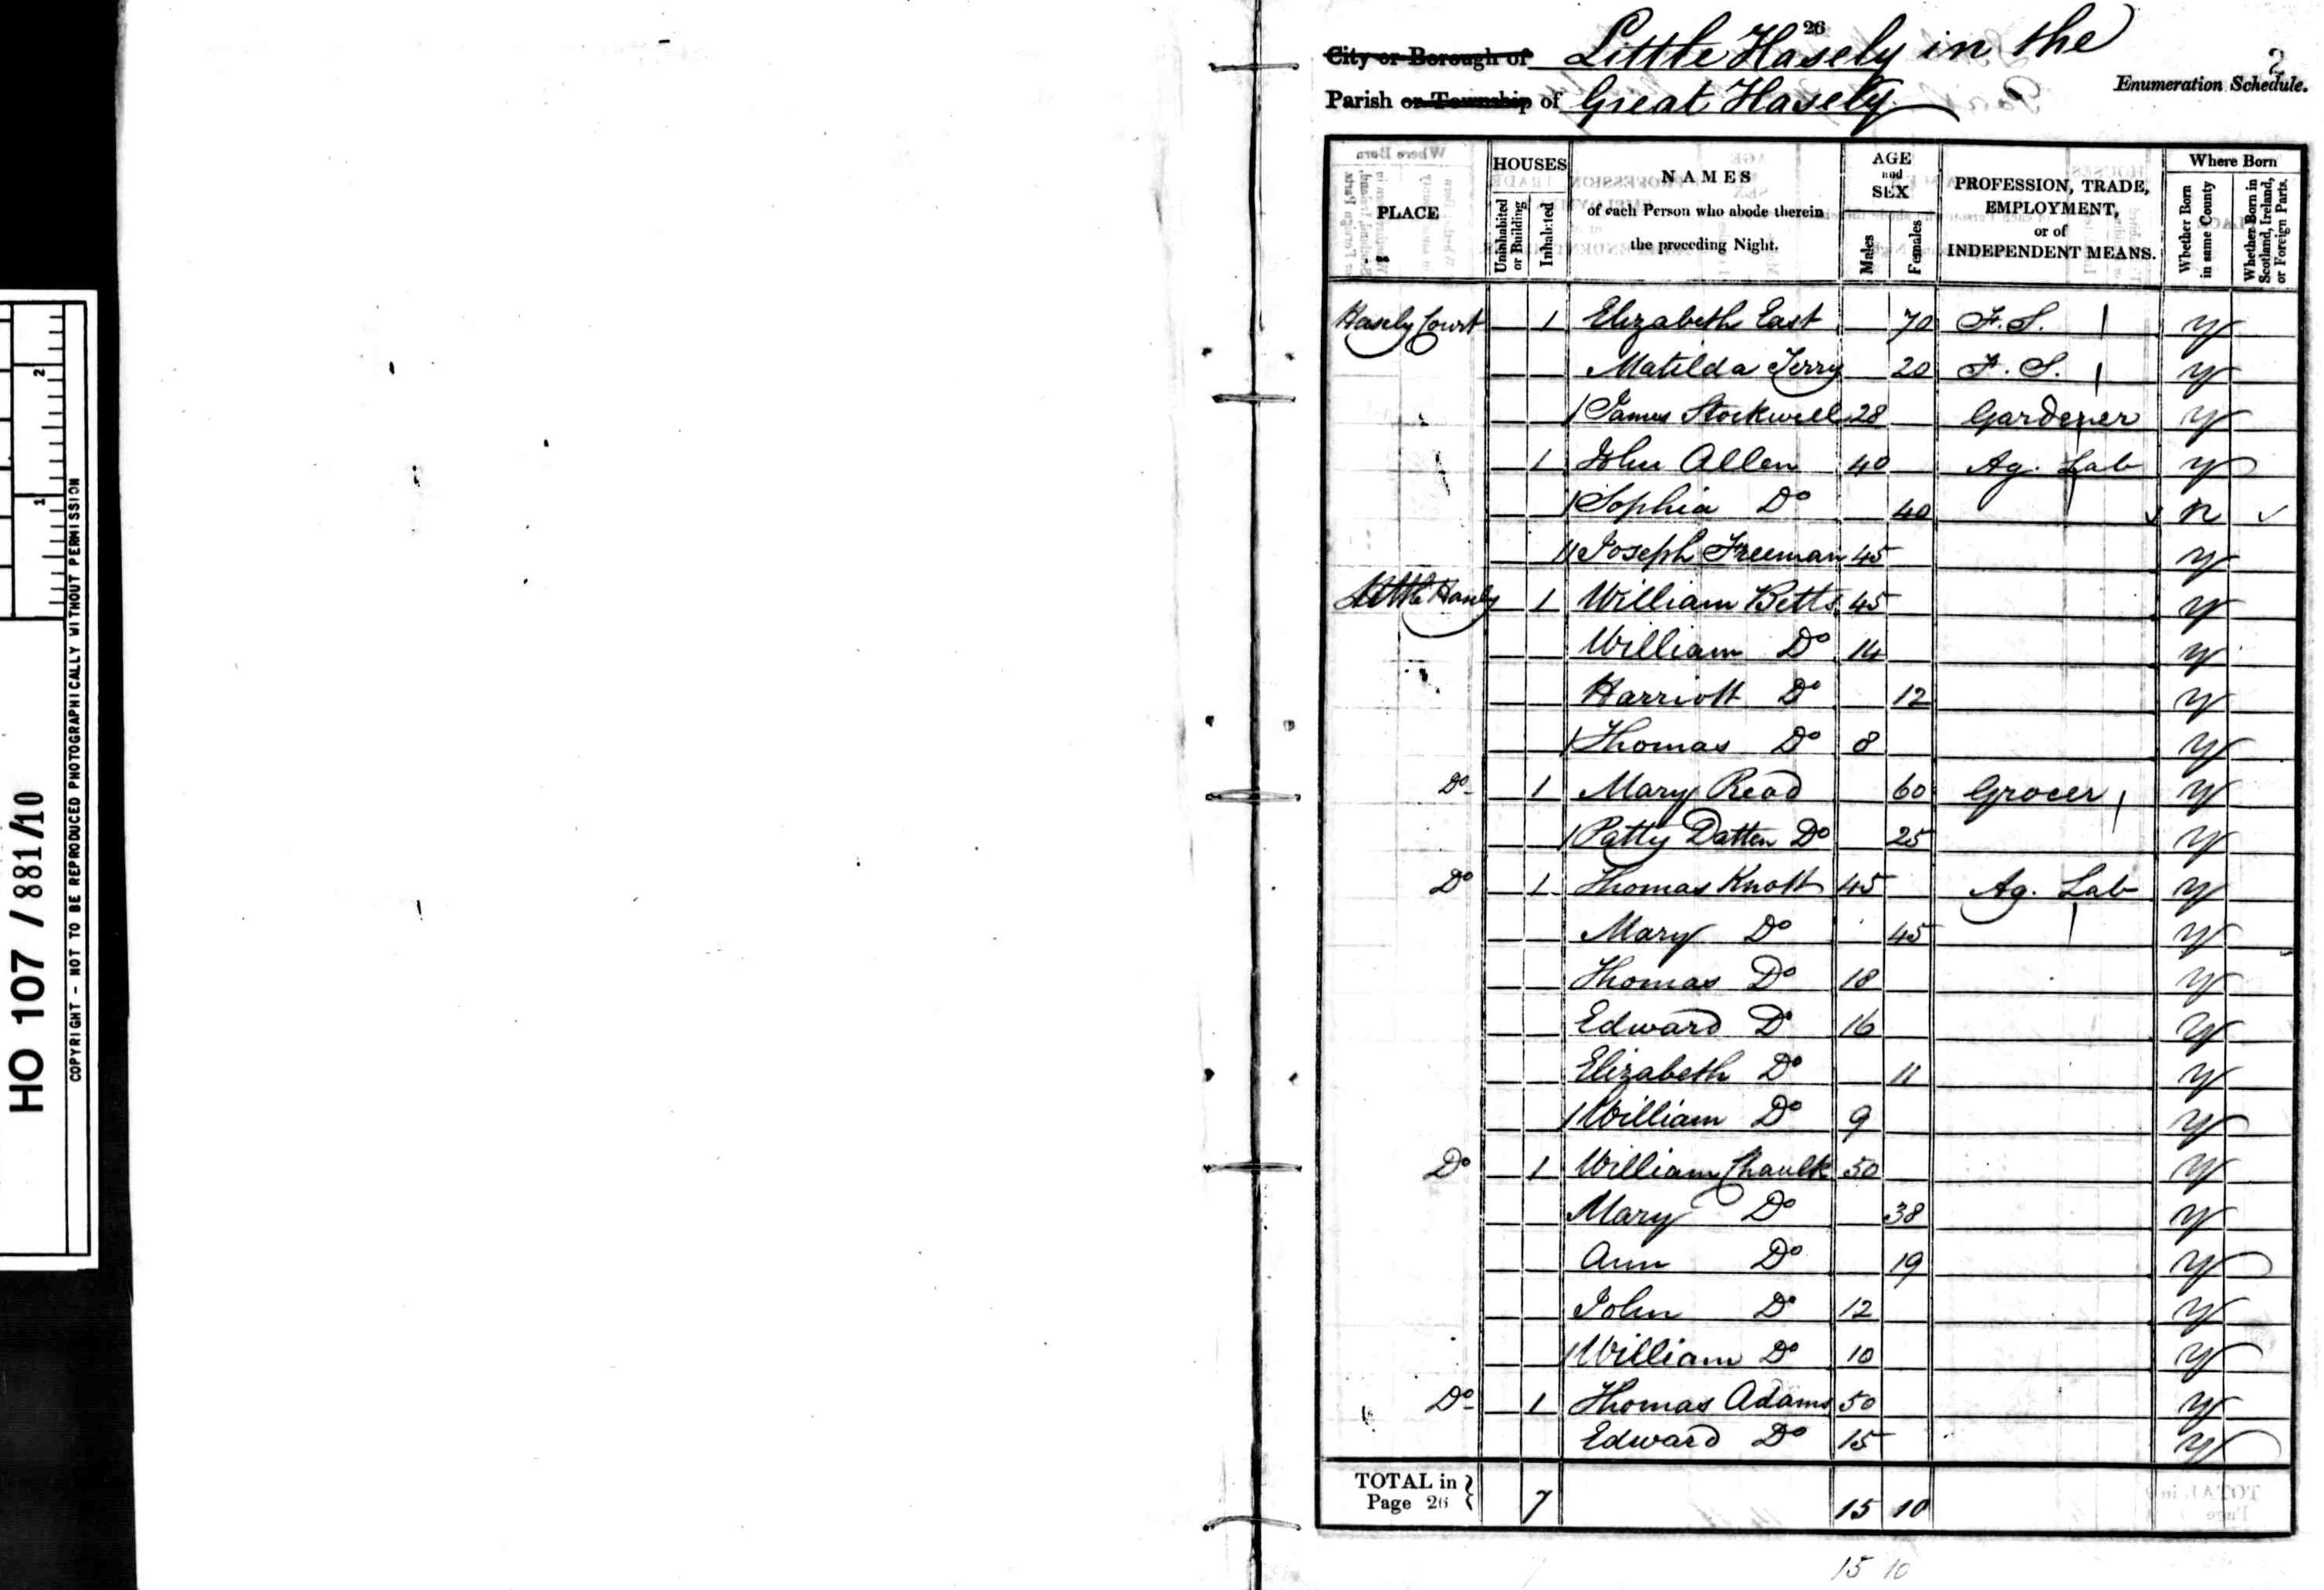 HO 107 / 881/10
COPYRIGHT - NOT TO BE REPRODUCED PHOTOGRAPHICALLY WITHOUT PERMISSION
2
1
26
City or Borough of Little Hasely in the
Parish or Township of Great Hasely
2
Enumeration Schedule.
PLACE
HOUSES
Uninhabited or Building
Inhabited
NAMES
of each Person who abode therein
the preceding Night.
AGE
and
SEX
Males
Females
PROFESSION, TRADE,
EMPLOYMENT,
or of
INDEPENDENT MEANS.
Where Born
Whether Born in same County
Whether Born in Scotland, Ireland, or Foreign Parts.
Hasely Court 1 Elizabeth East 70 F.S. y
Matilda Terry 20 F.S. y
James Stockwell 28 Gardener y
1 John Allen 40 Ag. Lab y
Sophia Do 40 n
Joseph Freeman 45 y
Little Hasely 1 William Betts 45 y
William Do 14 y
Harriott Do 12 y
Thomas Do 8 y
Do 1 Mary Read 60 Grocer y
Patty Datten Do 25 y
Do 1 Thomas Knott 45 Ag. Lab y
Mary Do 45 y
Thomas Do 18 y
Edward Do 16 y
Elizabeth Do 11 y
William Do 9 y
Do 1 William Chaulk 50 y
Mary Do 38 y
Ann Do 19 y
John Do 12 y
William Do 10 y
Do 1 Thomas Adams 50 y
Edward Do 15 y
TOTAL in
Page 26 7 15 10
15 10